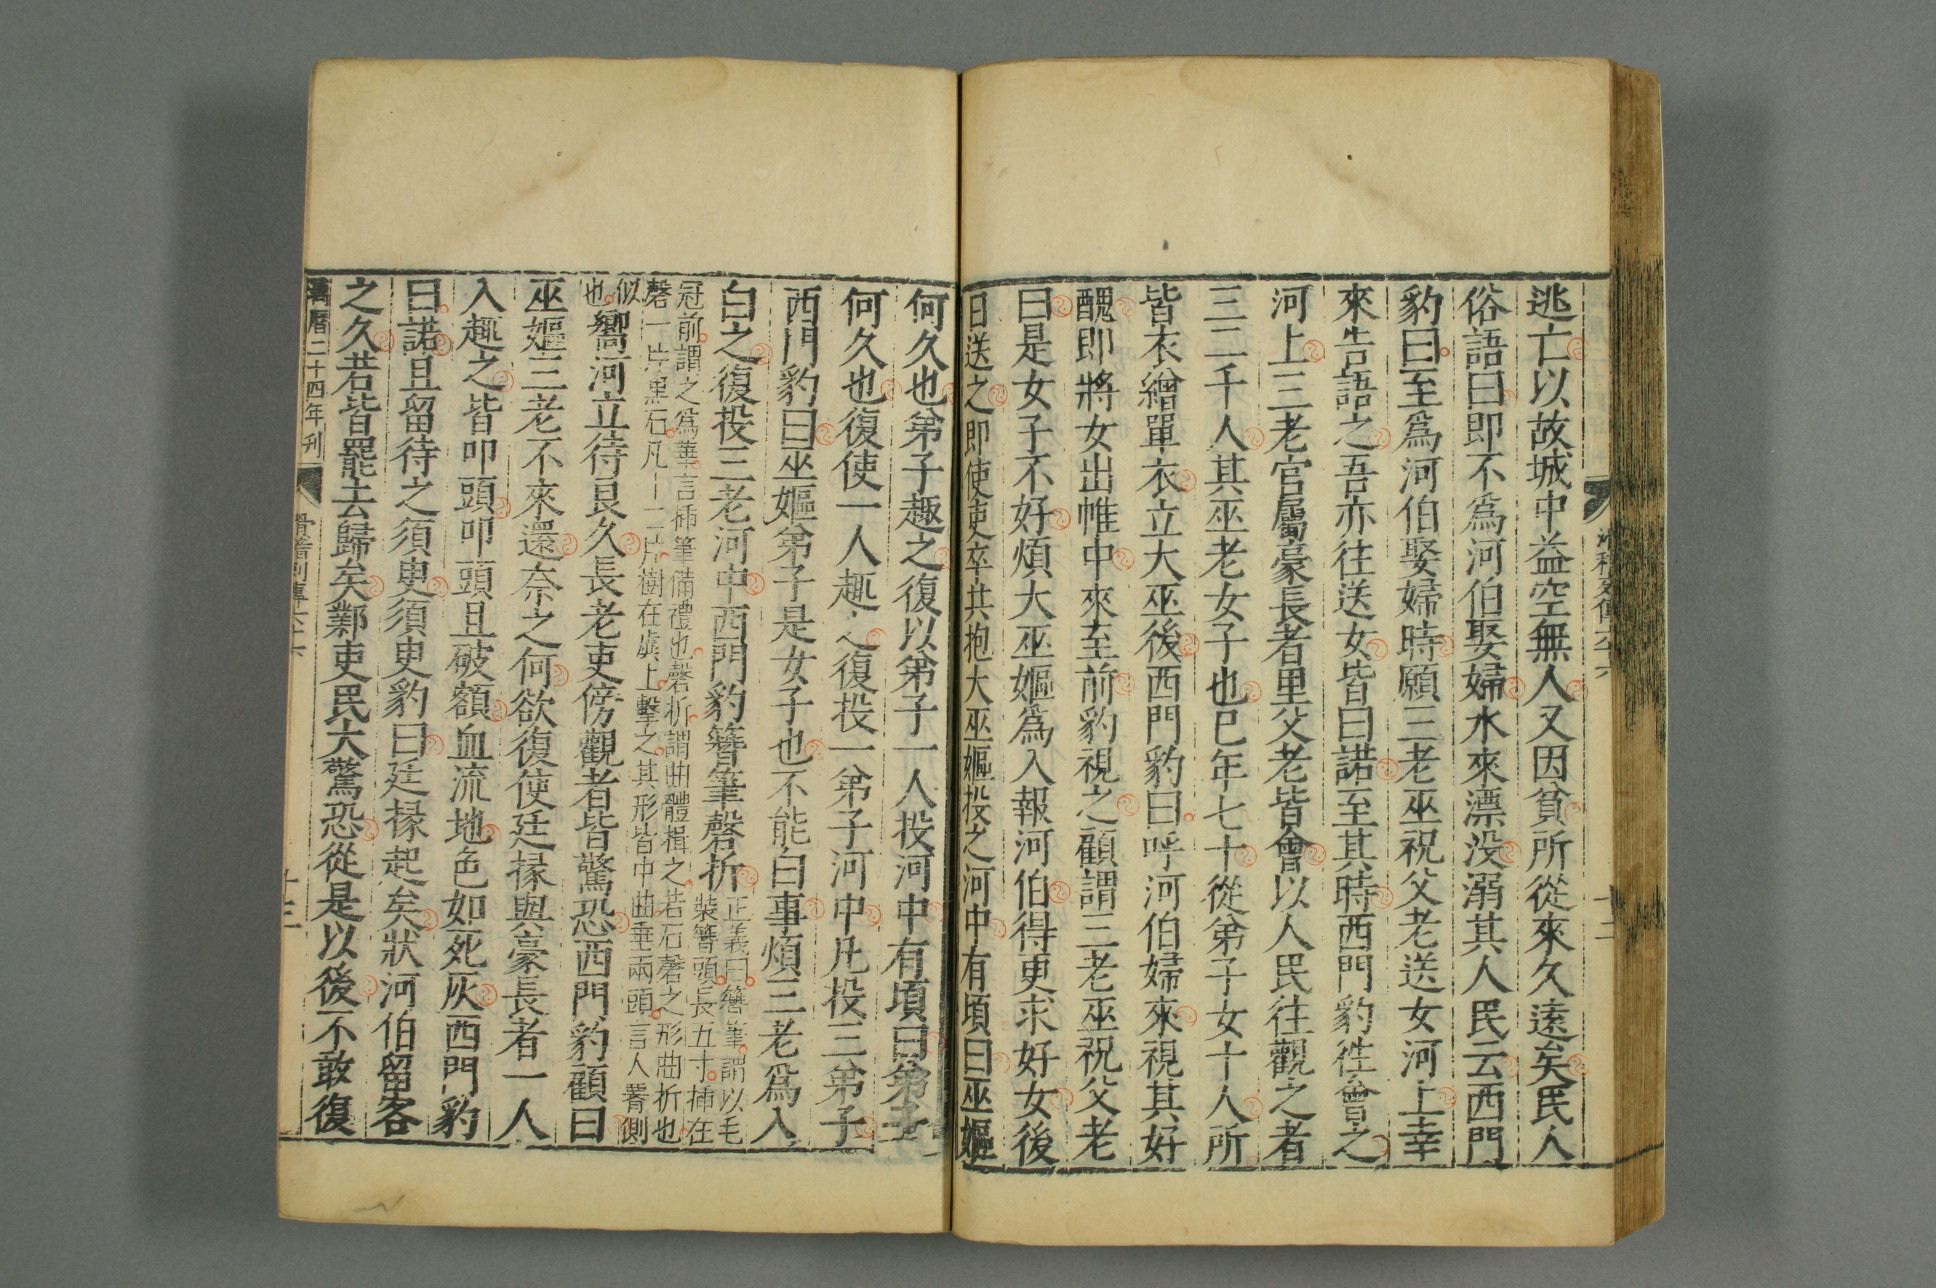 逃亡以故城中益空無人又因貧所從來久遠矣民人
俗語曰即不爲河伯娶婦水來漂没溺其人民云西門
豹曰至爲河伯娶婦時願三老巫祝父老送女河上幸
來告語之吾亦往送女皆曰諾至其時西門豹徃會之
河上三老官屬豪長者里父老皆會以人民往觀之者
三二千人其巫老女子也巳年七十從弟子女十人所
皆衣繒單衣立大巫後西門豹曰呼河伯婦來視其好
醜即將女出帷中來至前豹視之顧謂三老巫祝父老
曰是女子不好煩大巫嫗爲入報河伯得更求好女後
日送之即使吏卒共抱大巫嫗投之河中有頃曰巫嫗
何久也弟子趣之復以弟子一人投河中有頃曰弟子
何久也復使一人趣之復投一弟子河中凡投三弟子
西門豹曰巫嫗弟子是女子也不能白事煩三老爲入
白之復投三老河中西門豹簪筆磬折
正義曰簪筆謂以毛
裝簪頭長五寸揷在
冠前謂之爲筆言揷筆備禮也磬折謂曲體揖之若石磬之形曲折也
磬一片黑石凡十二片樹在虡上擊之其形皆中曲垂兩頭言人署側
似
也
嚮河立待良久長老吏傍觀者皆驚恐西門豹顧曰
巫嫗三老不來還奈之何欲復使廷掾與豪長者一人
入趣之皆叩頭叩頭且破額血流地色如死灰西門豹
曰諾且留待之須臾須臾豹曰廷掾起矣狀河伯留客
之久若皆罷去歸矣鄴吏民大驚恐從是以後不敢復
萬曆二十四年刋
滑稽列傳六十六
十三